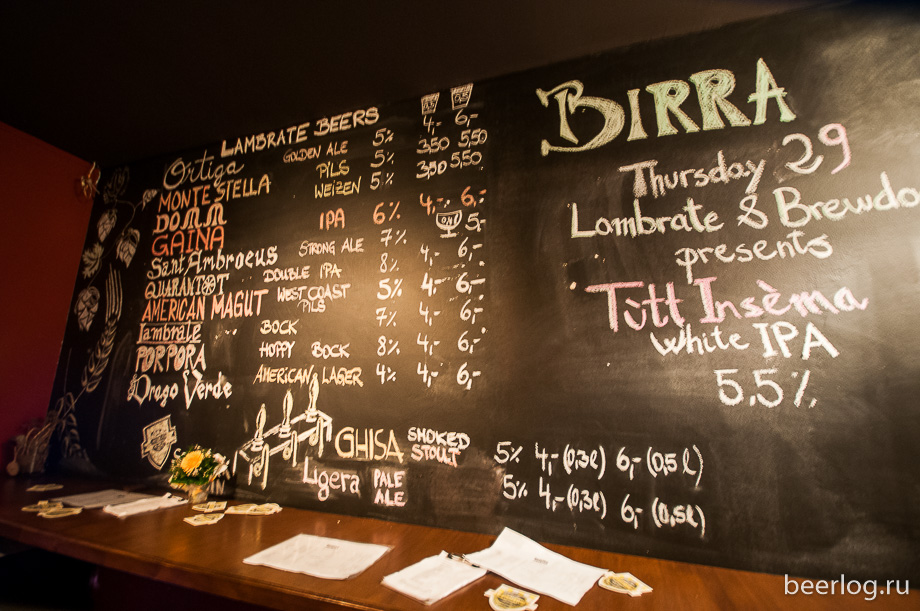 LAMBRATE BEERS
0,3 0,5
Ortiga GOLDEN ALE 5% 4,- 6,-
MONTE STELLA PILS 5% 3,50 5,50
DOMM WEIZEN 5% 3,50 5,50
GAINA IPA 6% 4,- 6,-
Sant'Ambroeus STRONG ALE 7% 0,4l 5,-
QUARANTOT DOUBLE IPA 8% 4,- 6,-
AMERICAN MAGUT WEST COAST PILS 5% 4,- 6,-
Lambrate BOCK 7% 4,- 6,-
PORPORA HOPPY BOCK 8% 4,- 6,-
Drago Verde AMERICAN LAGER 4% 4,- 6,-
GHISA SMOKED STOUT 5% 4,- (0,3l) 6,- (0,5l)
Ligera PALE ALE 5% 4,- (0,3l) 6,- (0,5l)
BIRRA
Thursday 29
Lambrate & Brewdo
presents
Tutt Insèma
White IPA
5.5%
beerlog.ru